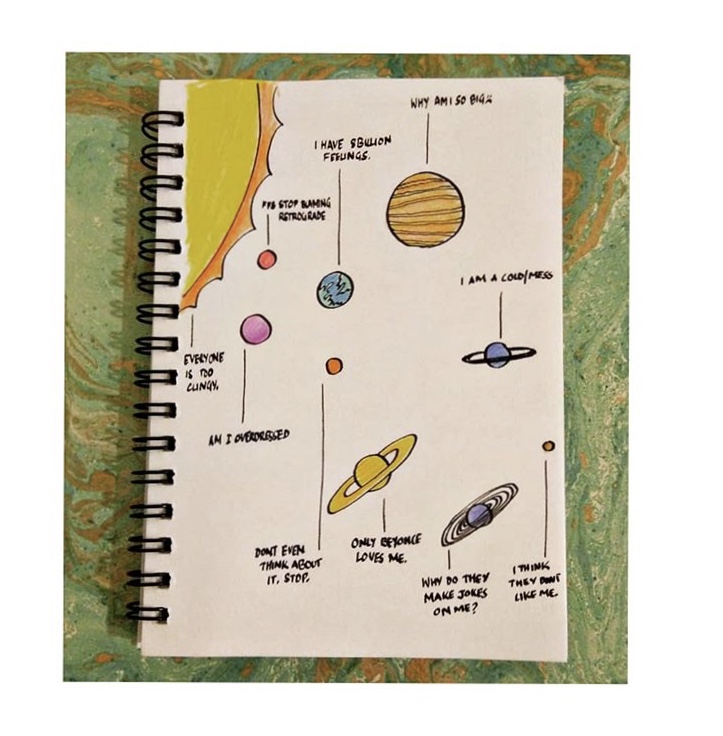 WHY AM I SO BIG
I HAVE 8 BILLION
FEELINGS.
STOP BLAMING
RETROGRADE
I AM A COLD/MESS
EVERYONE
IS TOO
CLINGY.
AM I OVERDRESSED
DONT EVEN
THINK ABOUT
IT. STOP.
ONLY BEYONCE
LOVES ME.
WHY DO THEY
MAKE JOKES
ON ME?
I THINK
THEY DONT
LIKE ME.